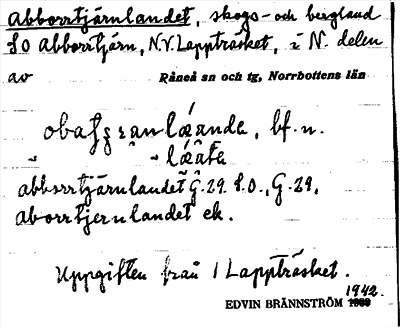 Abborrtjärnlandet, skogs- och bergland
S.O. Abborrtjärn, N.V. Lappträsket, i N. delen
av Råneå sn och tg, Norrbottens län
bf. n.
abborrtjärnlandet G.29. S.O., G.29,
aborrtjernlandet ek.
Uppgiften från 1 Lappträsket.
1942.
EDVIN BRÄNNSTRÖM